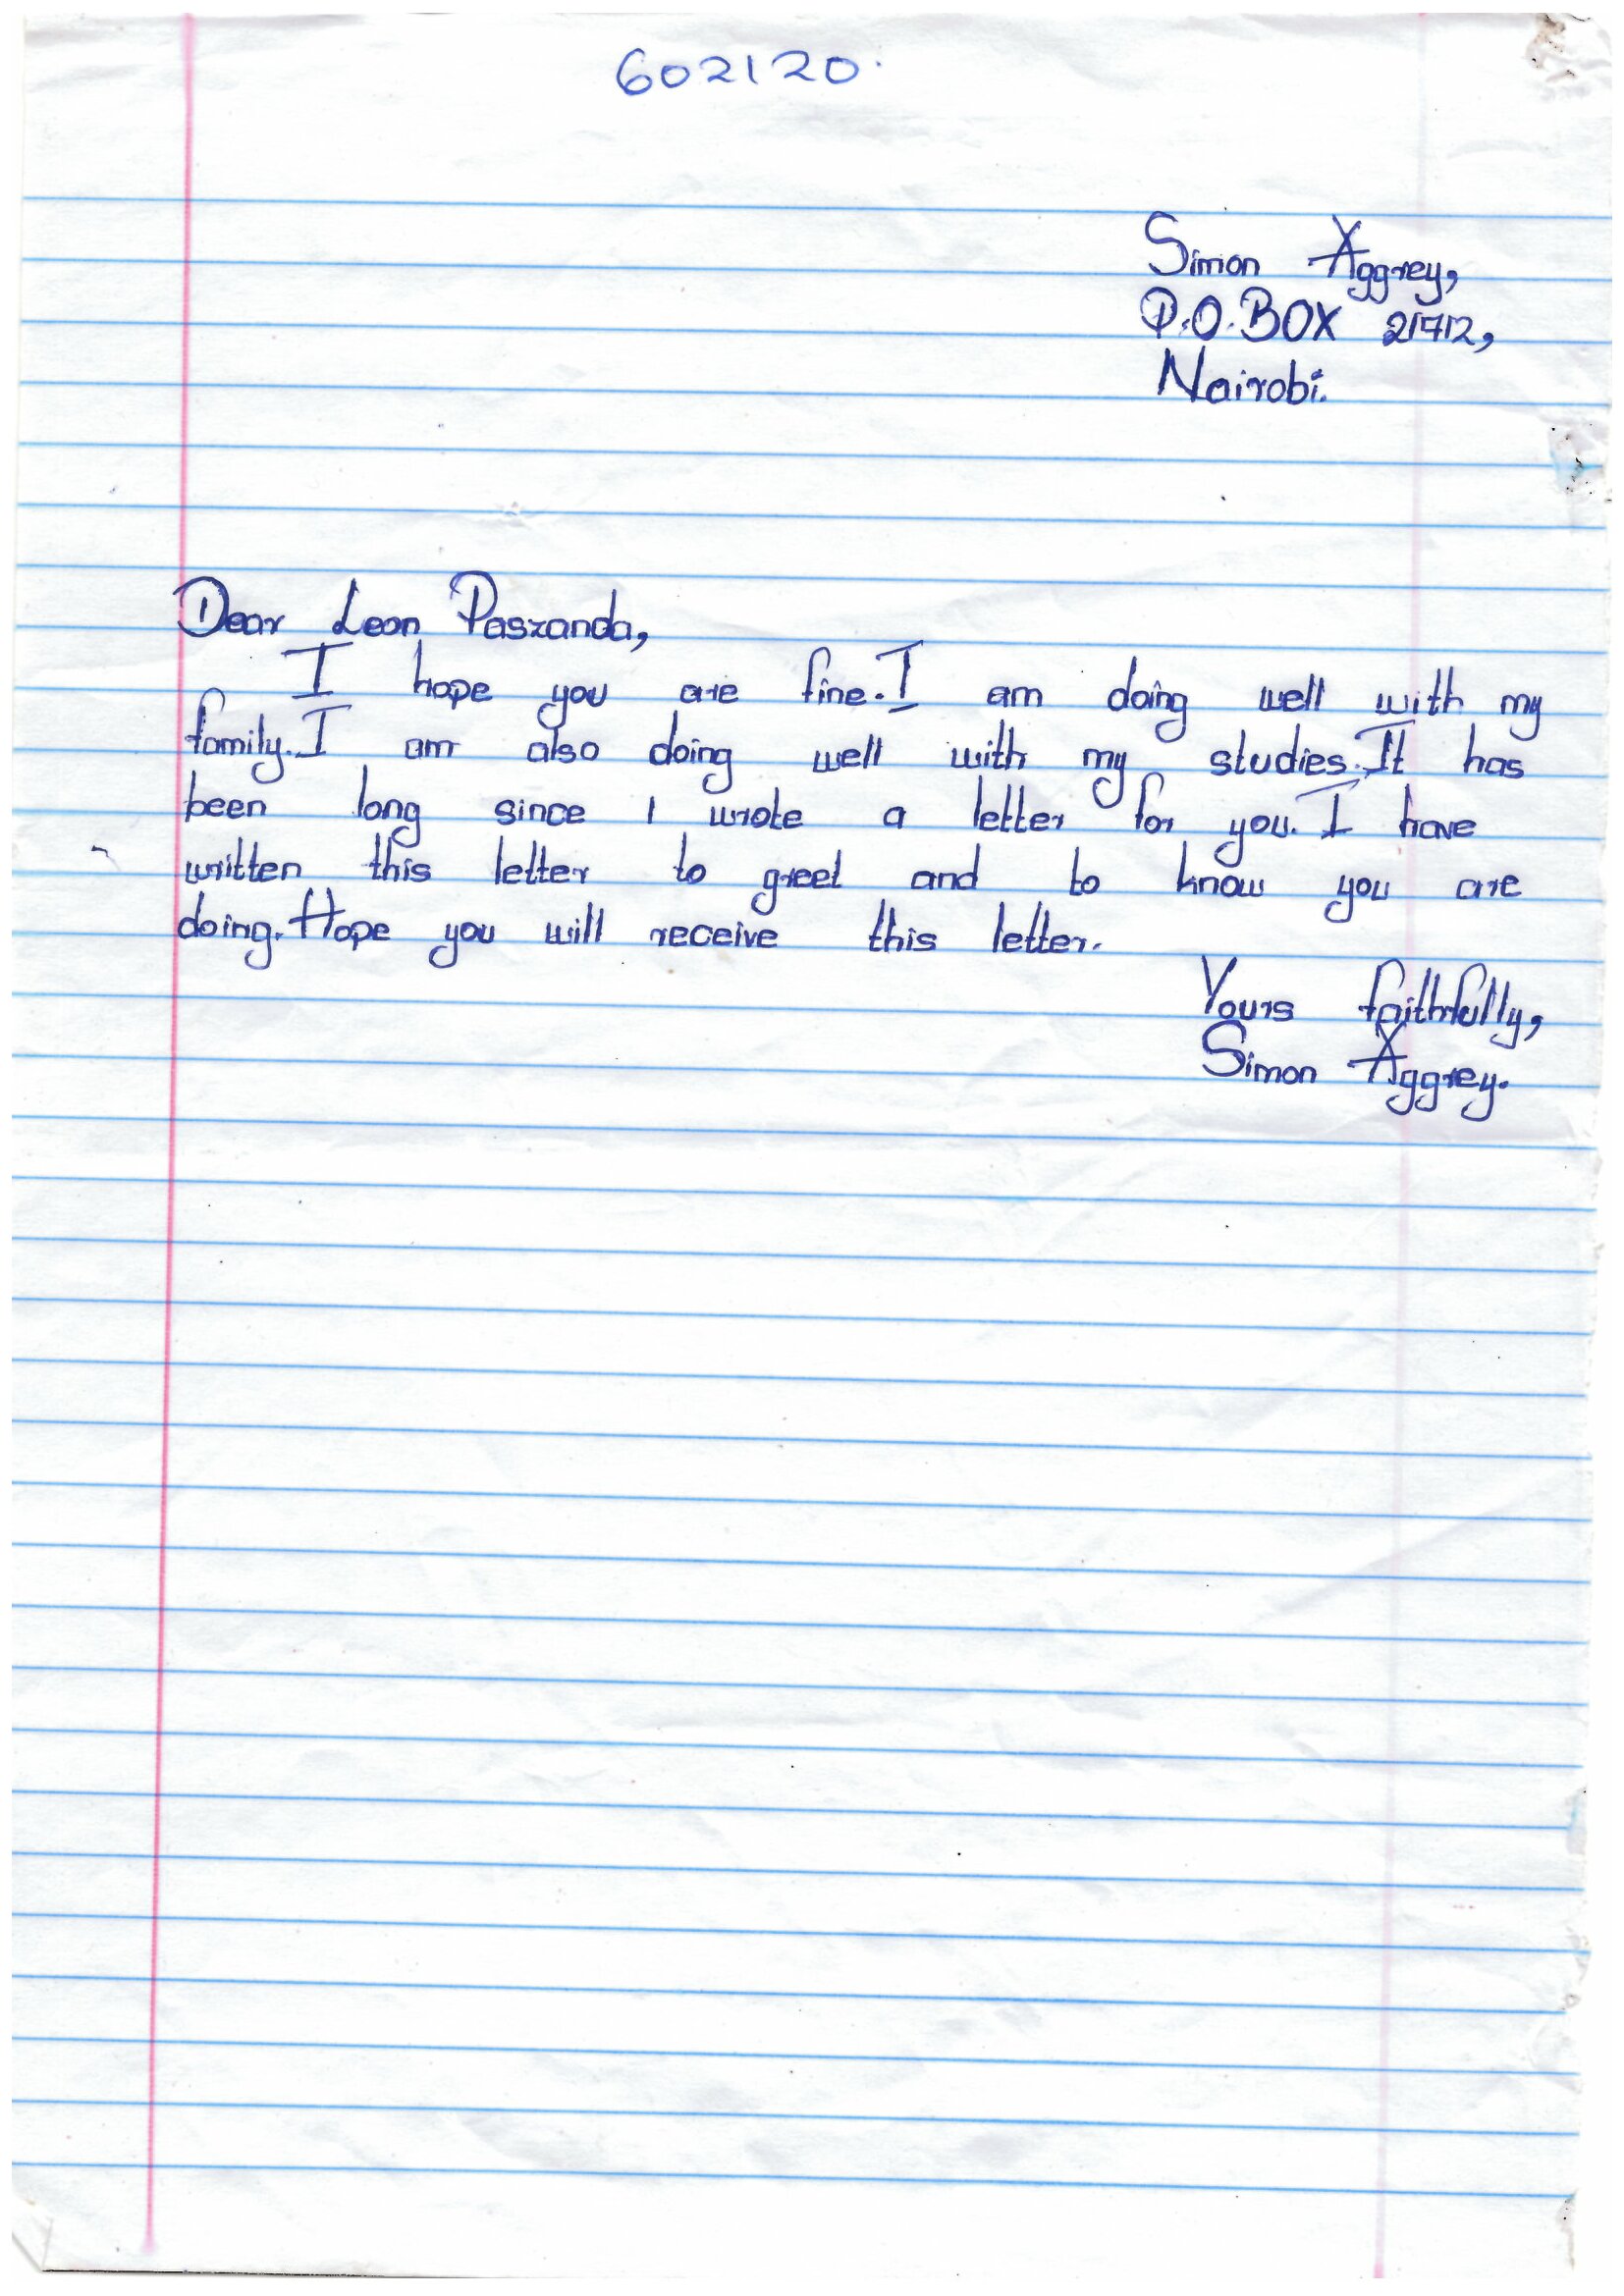 602120.
Simon Aggrey,
P.O.BOX 21712,
Nairobi.
Dear Leon Paszanda,
I hope you are fine. I am doing well with my
family. I am also doing well with my studies. It has
been long since I wrote a letter for you. I have
written this letter to greet and to know you are
doing. Hope you will receive this letter.
Yours faithfully,
Simon Aggrey.